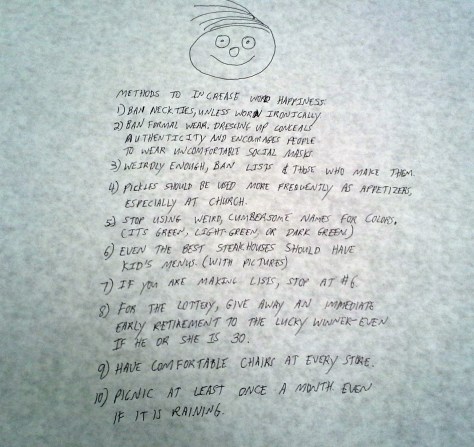 METHODS TO INCREASE WORD HAPPINESS.
1) BAN NECKTIES, UNLESS WORN IRONICALLY
2) BAN FORMAL WEAR. DRESSING UP CONCEALS
AUTHENTICITY AND ENCOURAGES PEOPLE
TO WEAR UNCOMFORTABLE SOCIAL MASKS
3) WEIRDLY ENOUGH, BAN LISTS & THOSE WHO MAKE THEM
4) PICKLES SHOULD BE USED MORE FREQUENTLY AS APPETIZERS,
ESPECIALLY AT CHURCH.
5) STOP USING WEIRD, CUMBERSOME NAMES FOR COLORS.
(ITS GREEN, LIGHT GREEN OR DARK GREEN)
6) EVEN THE BEST STEAKHOUSES SHOULD HAVE
KID'S MENUS. (WITH PICTURES)
7) IF YOU ARE MAKING LISTS, STOP AT #6
8) FOR THE LOTTERY, GIVE AWAY AN IMMEDIATE
EARLY RETIREMENT TO THE LUCKY WINNER-EVEN
IF HE OR SHE IS 30.
9) HAVE COMFORTABLE CHAIRS AT EVERY STORE.
10) PICNIC AT LEAST ONCE A MONTH. EVEN
IF IT IS RAINING.